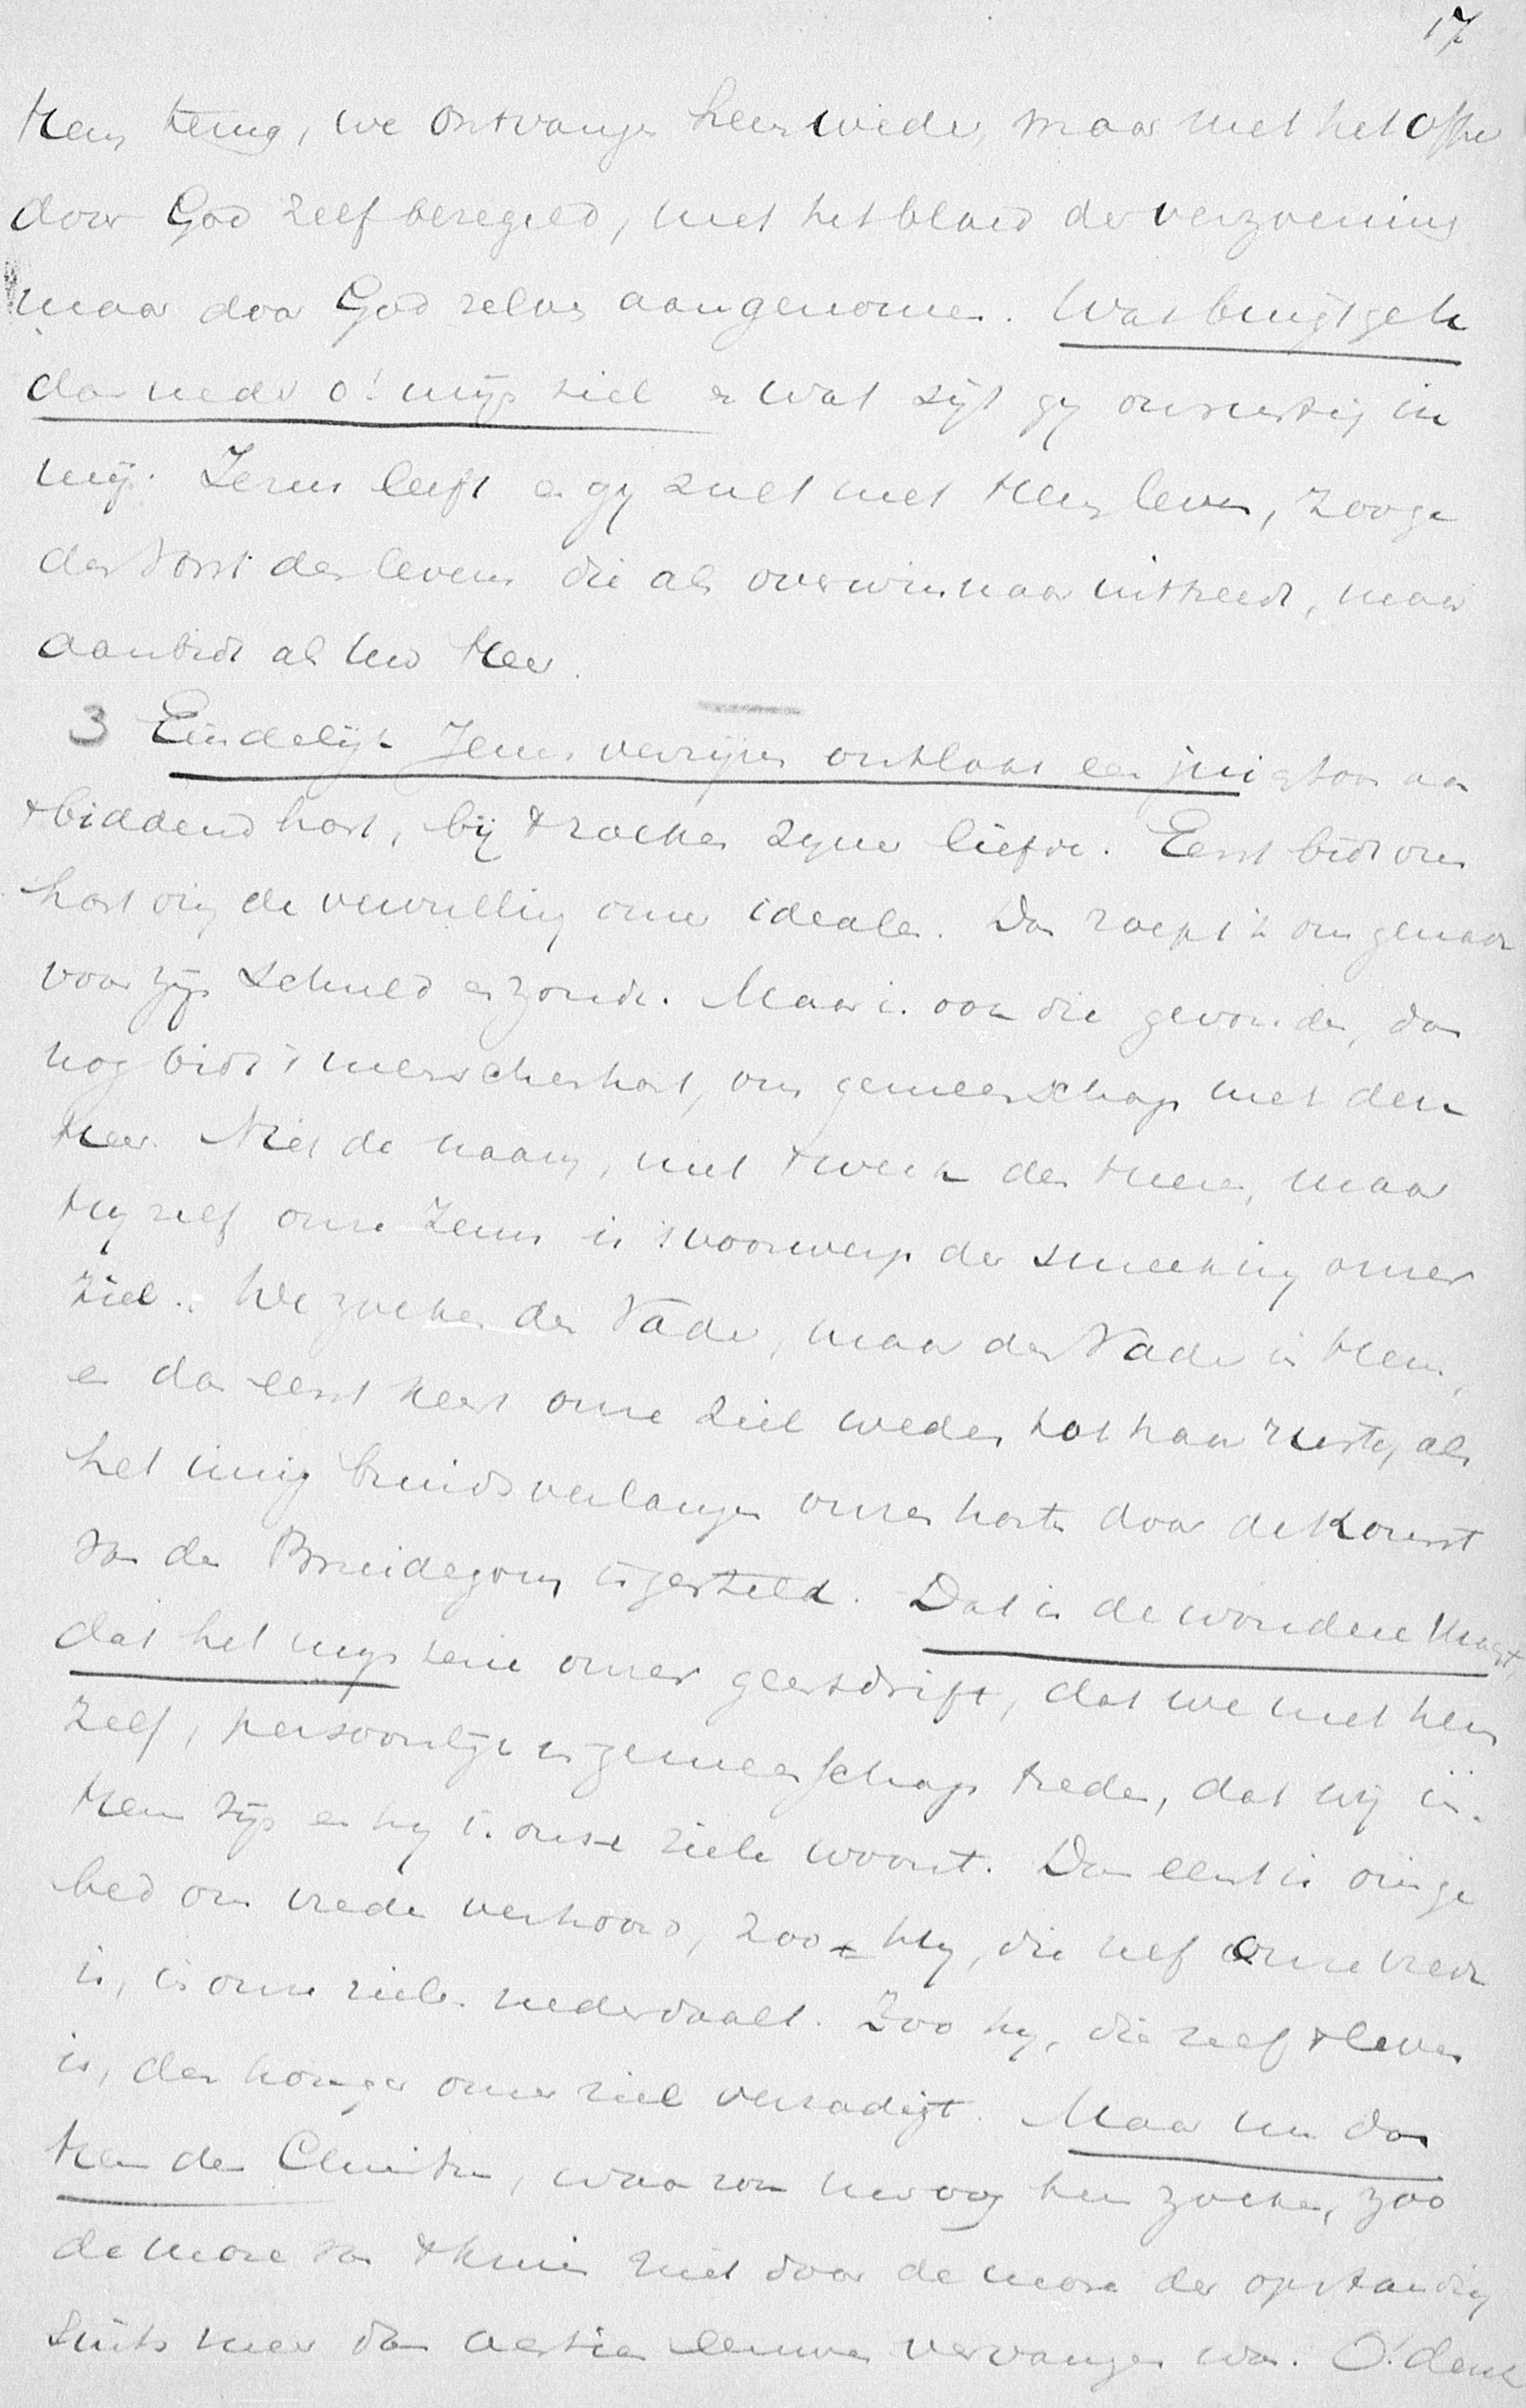 17
Hem terug, we ontvangen hem weder, maar met het offer
door God zelf bezegeld, met het bloed der verzoening
maar door God zelven aangenomen. Wat buigt ge u
dan neder o! mijn ziel en wat zijt gij onrustig in
mij. Jezus leeft en gij zult met Hem leven, zoo ge
den Vorst des levens die als overwinnaar uittreedt, maar
aanbidt als uw Heer.
3 Eindelijk Jezus verrijzen ontlokt een juichtoon aan
't biddend hart, bij 't zoeken zijner liefde. Eerst bidt ons
hart om de vervulling onzer idealen. Dan roept 't om genade
voor zijn schuld en zonde. Maar is ook die gevonden, dan
nog bidt 't menschenhart, om gemeenschap met den
Heer. Niet de naam, niet 't werk des Heeren, maar
Hij zelf onze Jezus is 't voorwerp der smeeking onzer
ziel. We zoeken den Vader, maar den Vader in Hem,
en dan eerst keert onze ziel weder tot haar ruste, als
het innig bruidsverlangen onzes harten door de komst
van den Bruidegom is gestild. Dat is de wondere kracht,
dat het mysterie onzer geestdrift, dat we met hem
zelf, persoonlijk in gemeenschap treden, dat wij in
Hem zijn en hij in onze ziele woont. Dan eerst is ons ge
bed om vrede verhoord, zoo Hij, die zelf onze vrede
is, in onze ziele nederdaalt. Zoo hij, die zelf 't leven
is, den honger onzer ziel verzadigt. Maar nu dan
Hem den Christus, waar zou uw oog hem zoeken, zoo
de more van 't kruis niet door de more der opstanding
sints meer dan achtien eeuwen vervangen was. O! denk